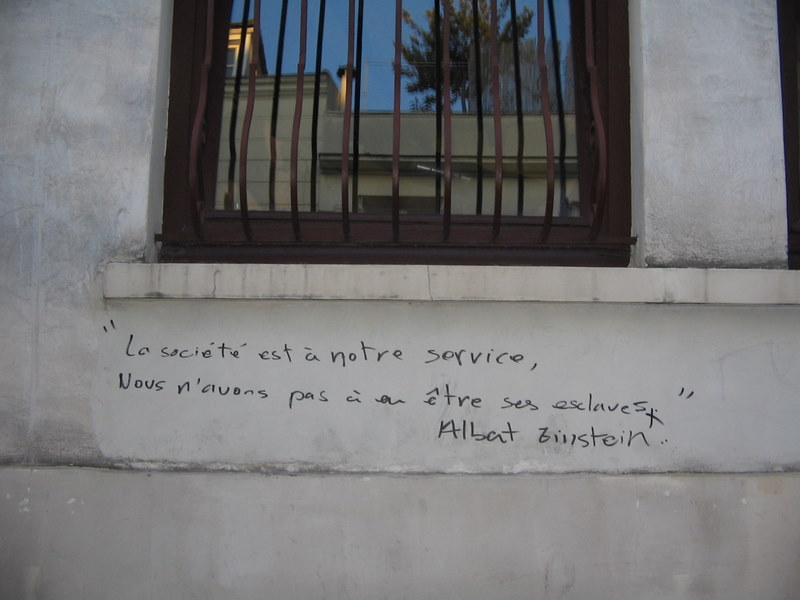 "La société est à notre service,
Nous n'avons pas à en être ses esclaves."
Albat Einstein..